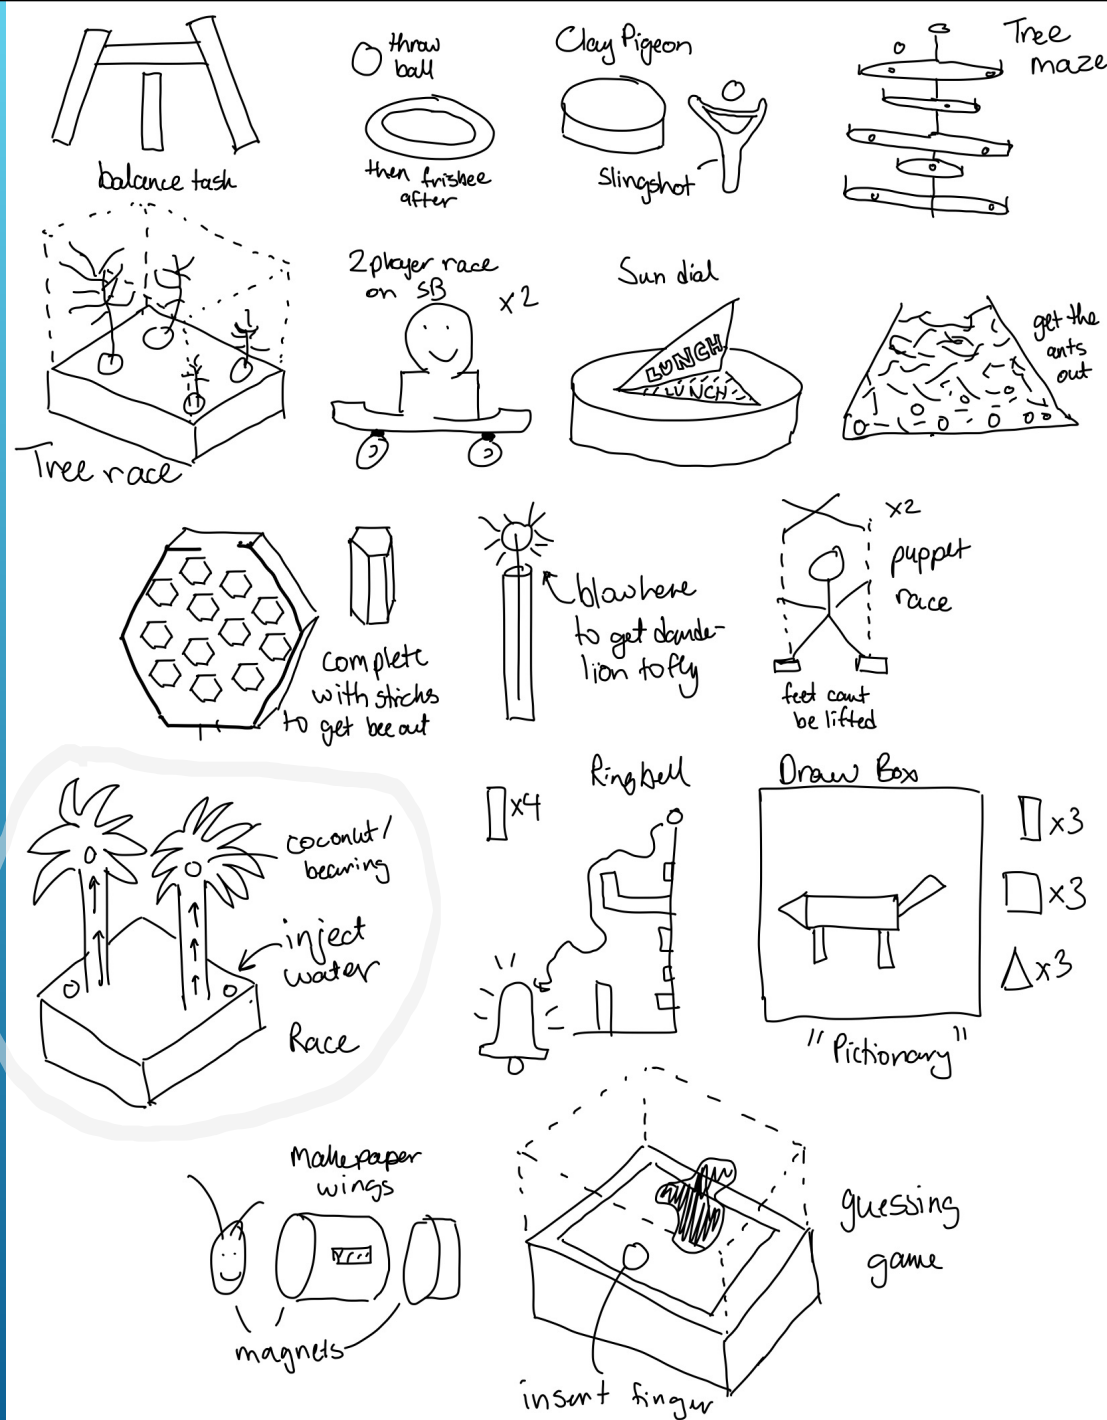 balance task
throw
ball
then frisbee
after
Clay Pigeon
Slingshot
Tree
maze
Tree race
2 player race
on SB
x2
Sun dial
LUNCH
LUNCH
get the
ants
out
complete
with sticks
to get bee out
blow here
to get dande-
lion to fly
x2
puppet
race
feet can't
be lifted
coconut/
bearing
inject
water
Race
x4
Ring bell
Draw Box
x3
x3
x3
"Pictionary"
Make paper
wings
magnets
guessing
game
insert finger